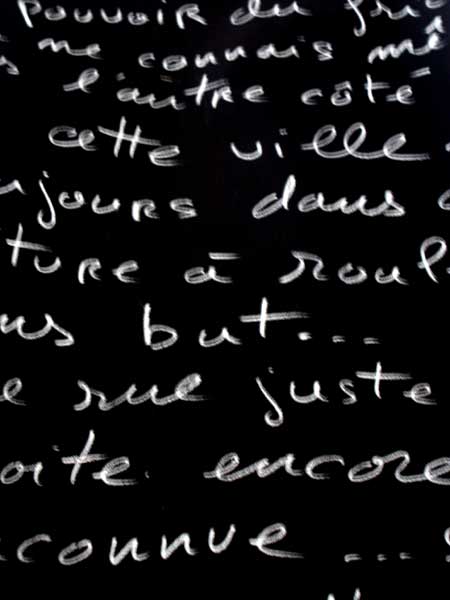 pouvoir du
me connais
l'autre côté
cette ville
ujours dans
ture à roul
ns but...
e rue juste
oite. encore
connue ...